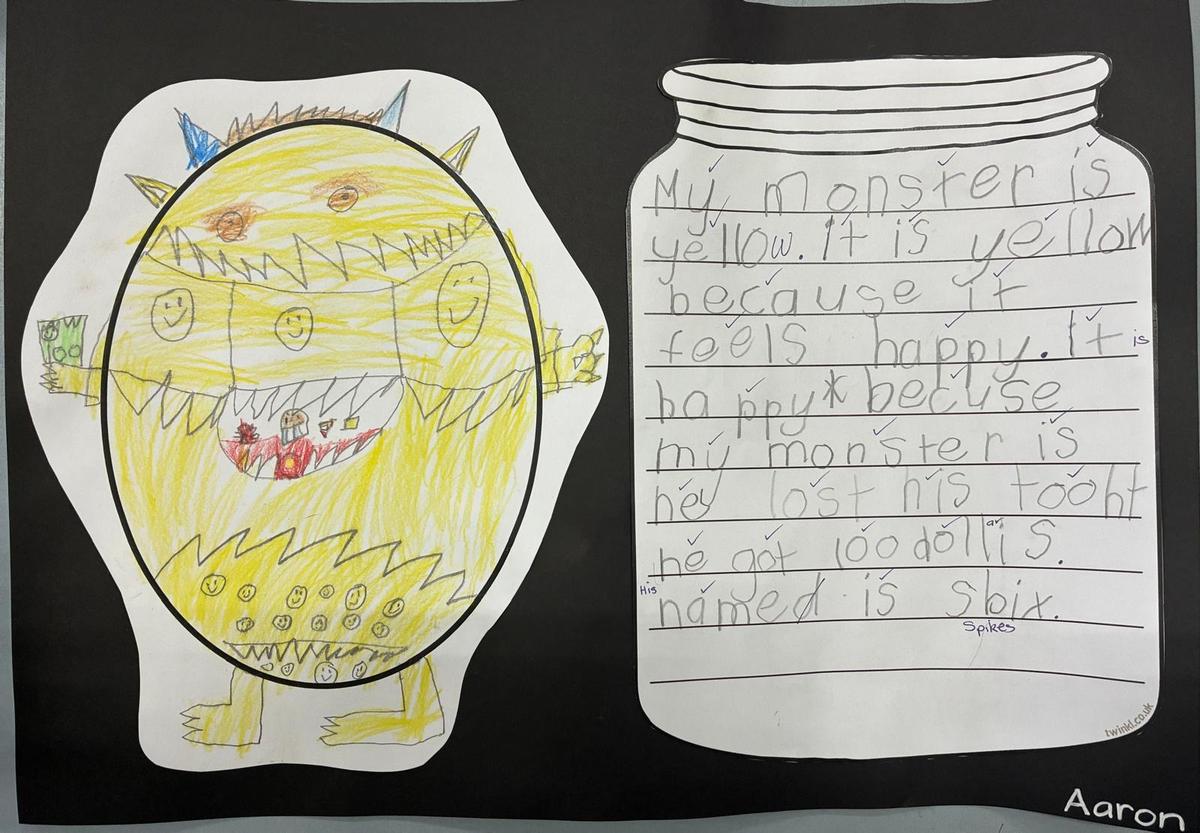 My monster is
yellow. It is yellow
because it
feels happy. It is
happy * becuse
my monster is
hey lost his tooht
he got 100 dollis.
ar
His named is sbix.
Spikes
twinkl.co.uk
Aaron